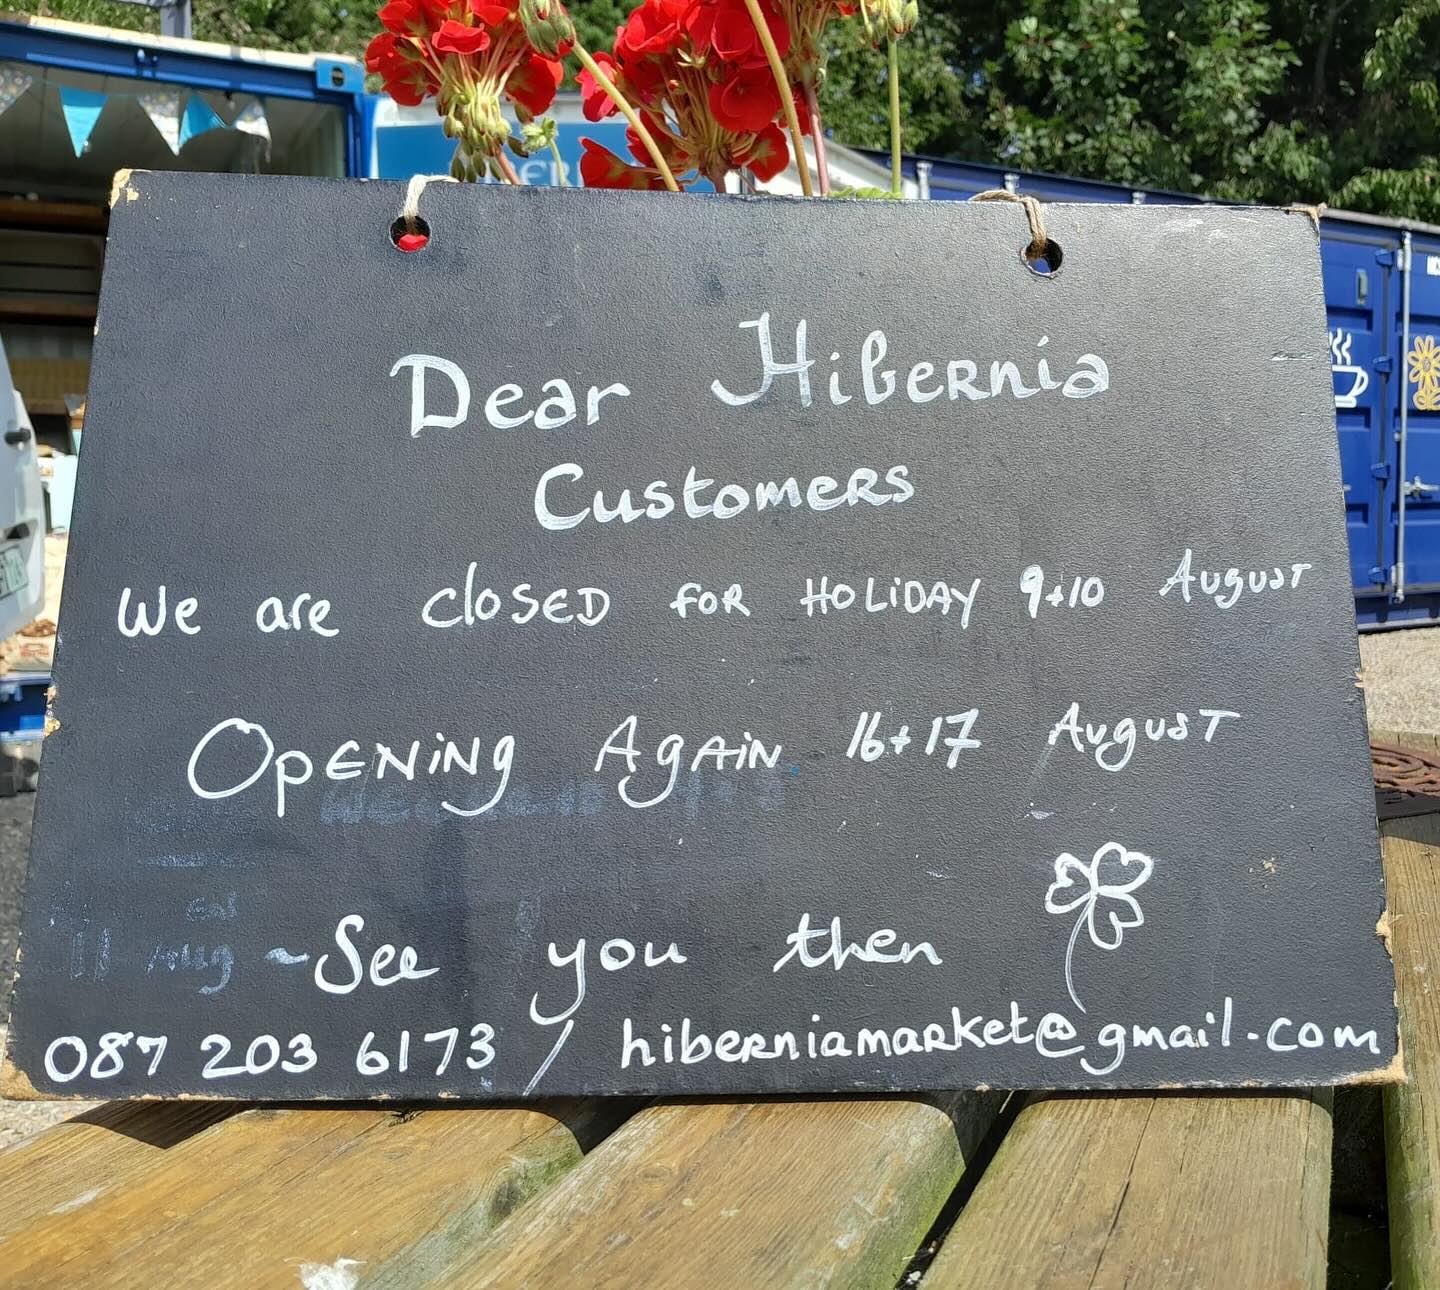 Dear Hibernia
Customers
We are closed for Holiday 9+10 August
Opening Again 16+17 August
11 Aug
~See you then
087 203 6173 / hiberniamarket@gmail.com